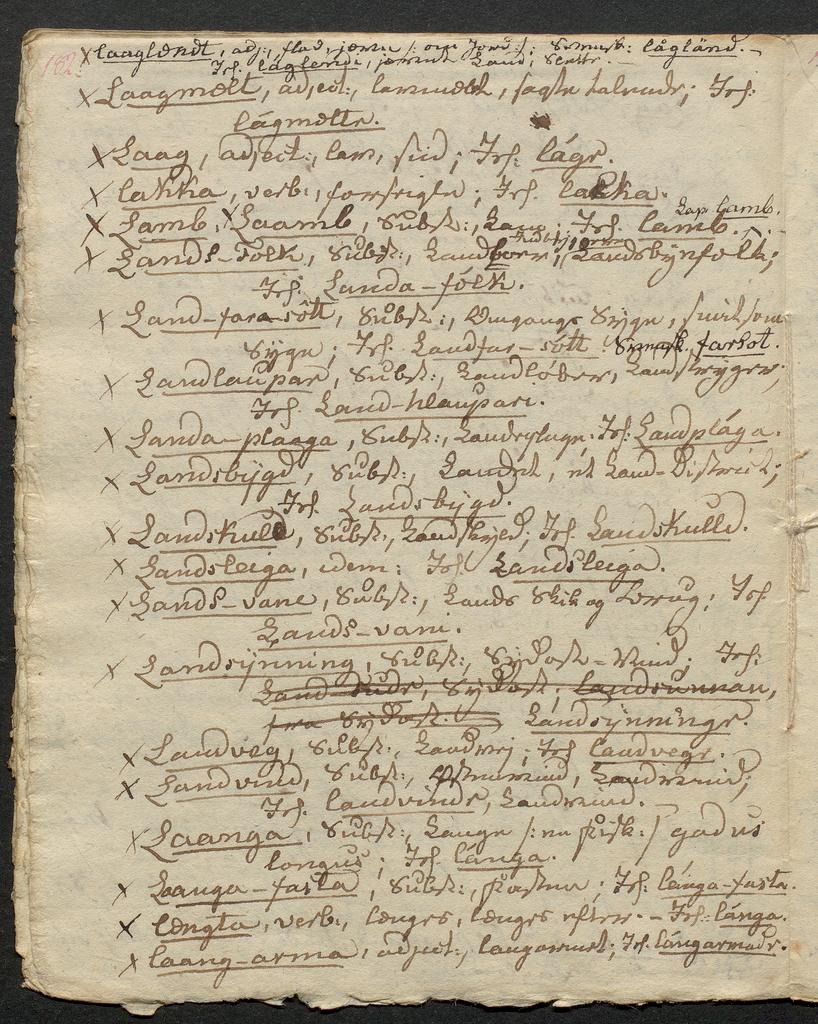 182.
× laaglendt, adj:, flad, jevn /: om Jord :/; Svensk: lågländ. –
Isl. láglendi, jevnt Land, Slette. –
× Laagmælt, adject:, lavmælt, sagte talende; Isl:
lágmæltr.
× Laag, adject:, lav, sid; Isl: lágr.
× lakka, verb:, forseigle; Isl. lakka.
Lap. lamb.
× Lamb, × Laamb, Subst:, Lam; Isl. lamb.
× Lands-Folk, Subst:, Landboer, Landsbyefolk;
Isl. Landa-fólk.
× Land-fara-sótt, Subst:, Omgangs Syge, smitsom
Syge; Isl. Landfar-sótt. Svensk. farsot.
× Landlaupar, Subst:, Landløber, Landstryger;
Isl. Land-hlaupari.
× Landa-plaaga, Subst:, Landeplage. Isl: Landplága.
× Landsbygd, Subst:, Landet, et Land-District;
Isl. Landsbygd.
× Landskuld, Subst:, Landskyld; Isl. Landskulld.
× Landsleiga, idem: Isl. Landsleiga.
× Lands-vane, Subst:, Lands Skik og Brug; Isl
Lands-vani.
× Landsynning, Subst:, Sydost-Vind; Isl:
Land-sudr, Sydost. landsunnan,
fra Sydost. Landsynningr.
× Landveg, Subst:, Landvej; Isl landvegr.
× Landvind, Subst:, Østenvind, Landvind;
Isl. landvindr, Landvind. –
× Laanga, Subst:, Lange /: en Fisk :/ gadus
longus; Isl. lánga.
× Laanga-fasta, Subst:, Fasten; Isl: lánga-fasta.
× længta, verb:, længes, længes efter. – Isl: lánga.
× laang-arma, adject:, langarmet; Isl. lángarmadr.